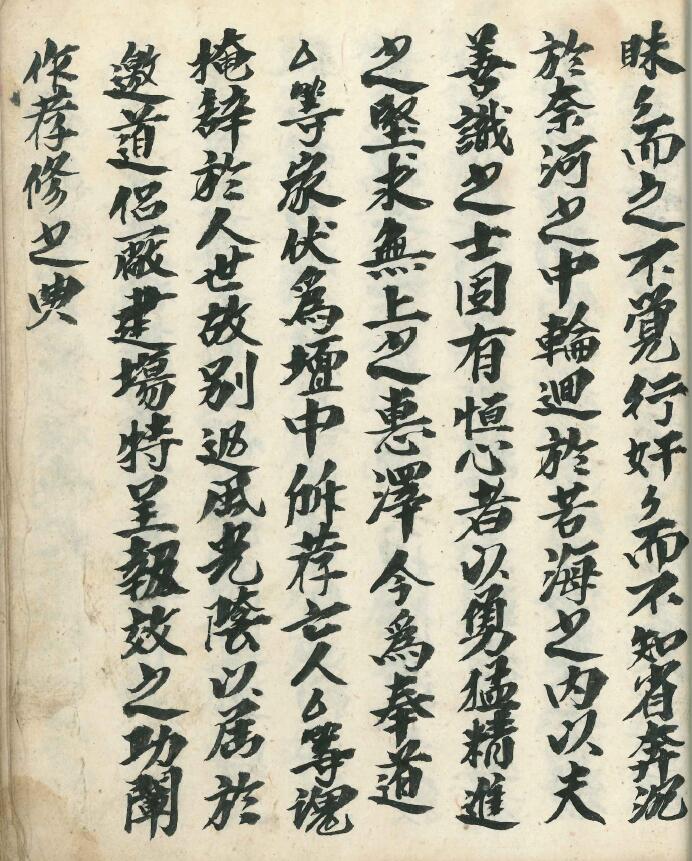 昧々而之不覺行奸々而不知省奔沉
於奈河之中輪迴於苦海之内以夫
善識之士固有恒心者以勇猛精進
之堅求無上之惠澤今為奉道
厶等家伏為壇中所荐亡人厶等魂
掩辞於人世故别迯風光陰以届於
邀道侣嚴建塲特呈報效之功闡
作荐修之典